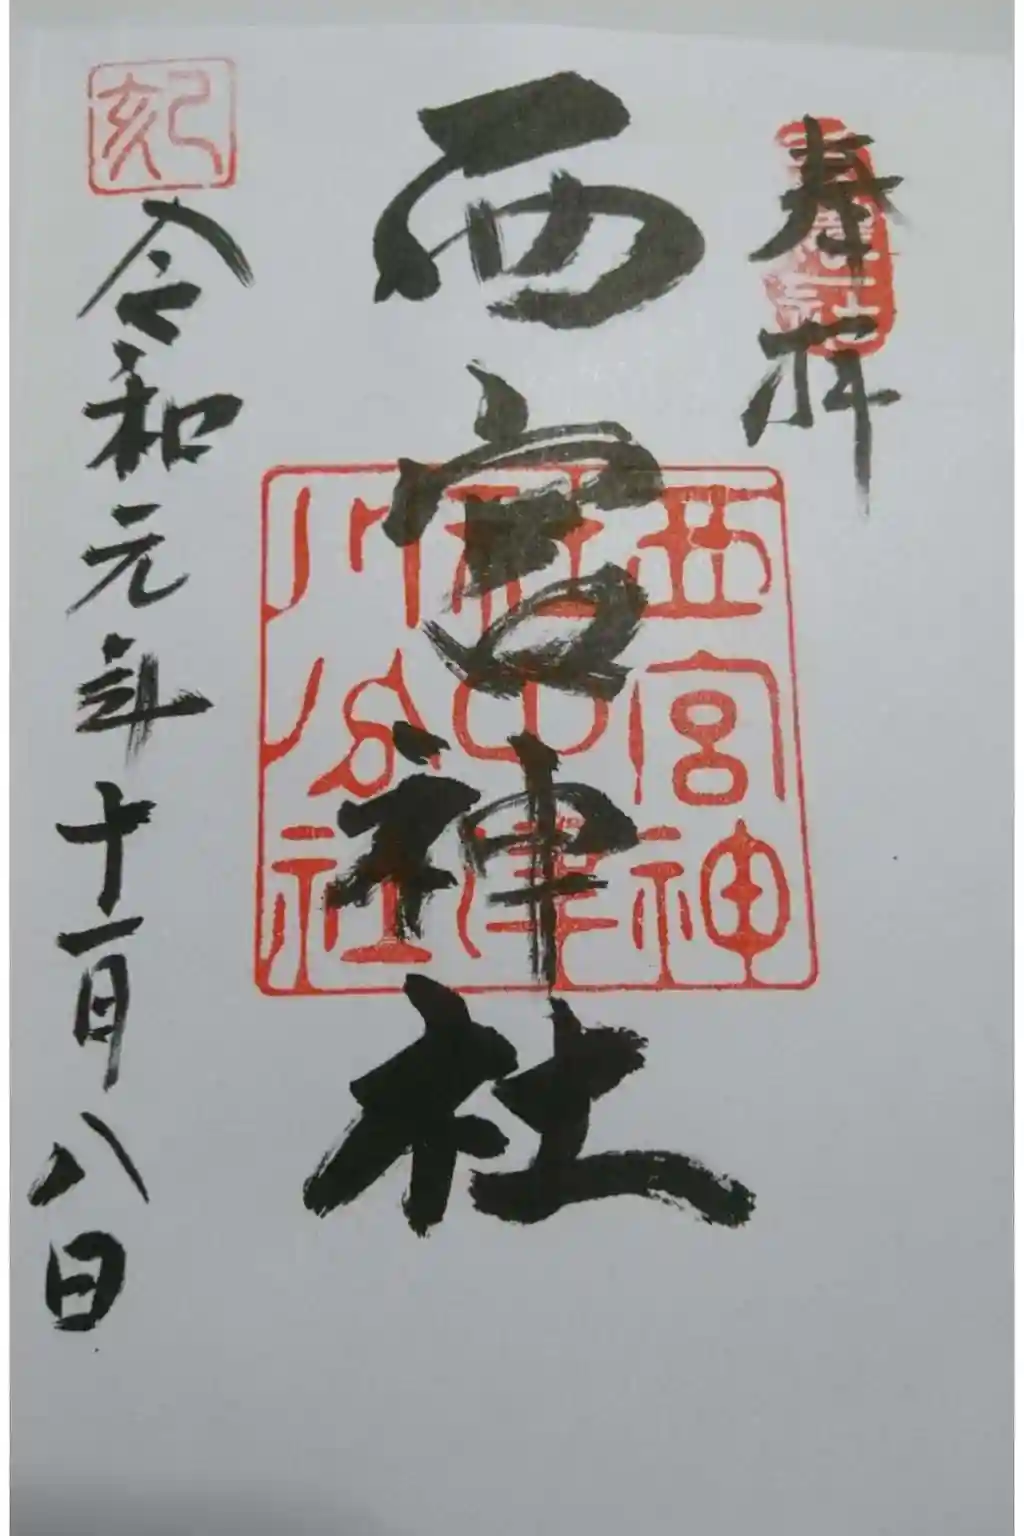 奉拝
西宮神社
西宮神
社中津
川分社
令和元年十一月八日